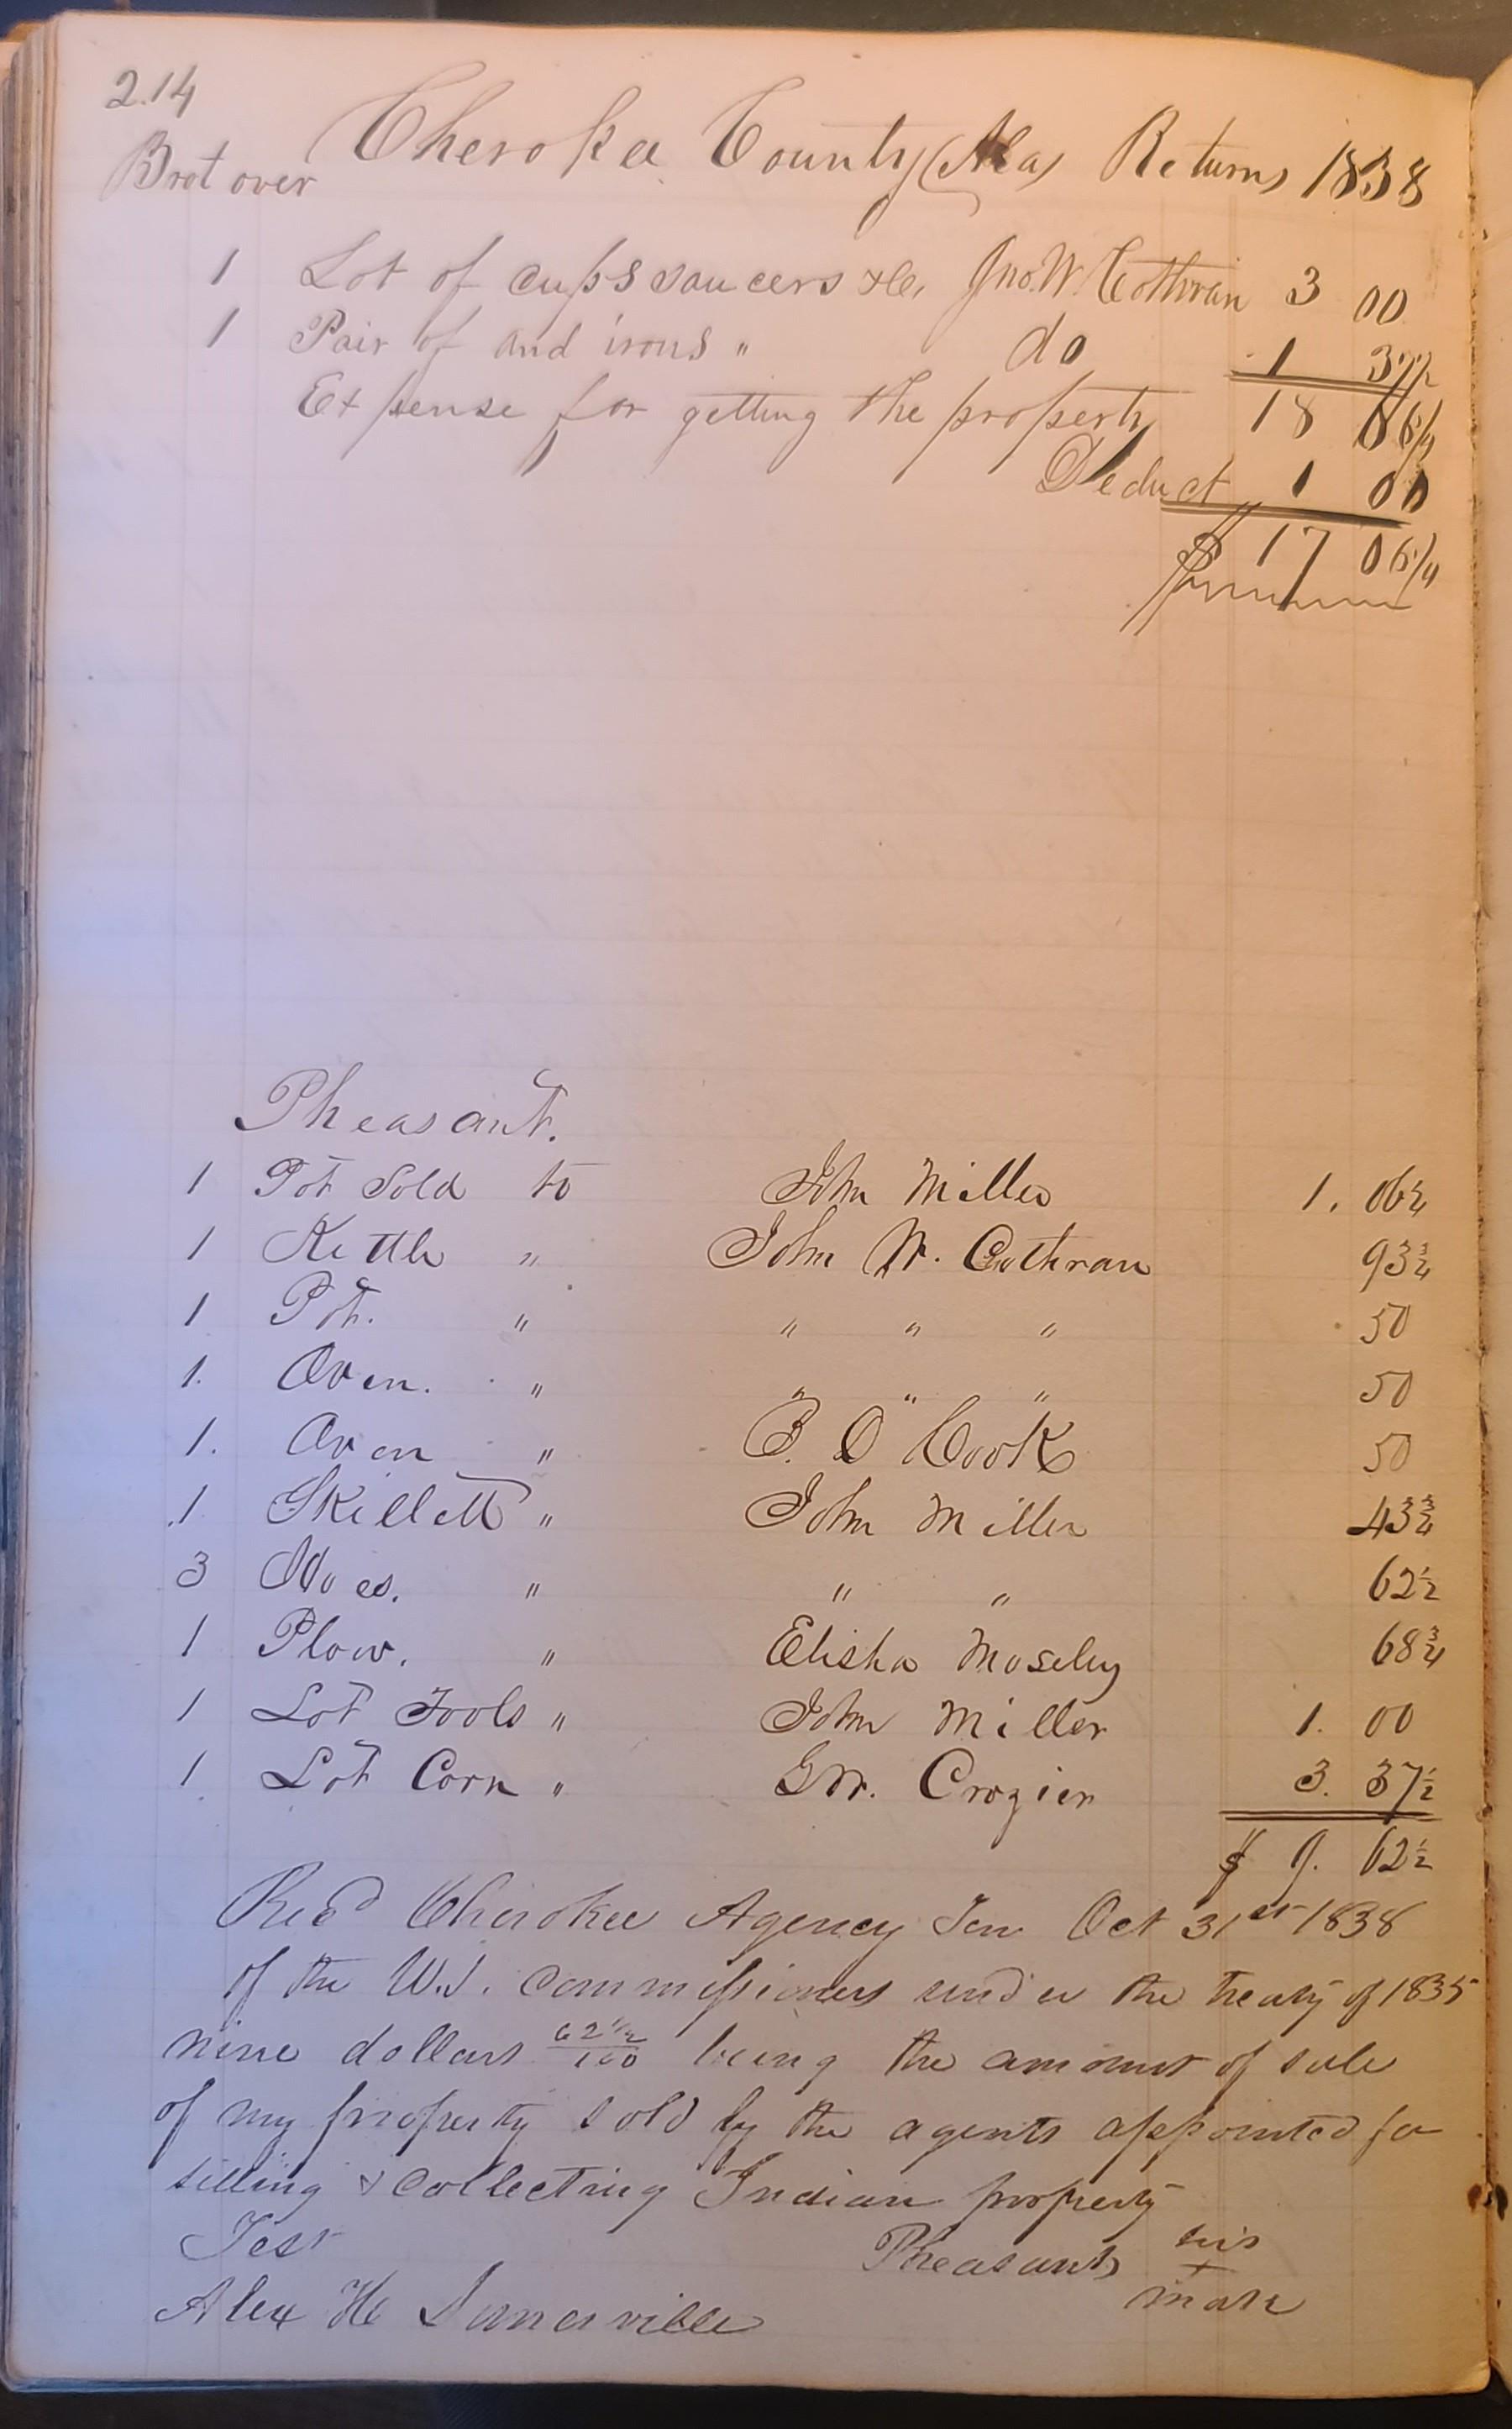 214
Cherokee County (Ala) Returns 1838
Brot over
1 Lot of cups & saucers &c. Jno. W. Cothran 3 00
1 Pair of and irons " do 1 37 1/2
Expense for getting the property 18 06 1/4
Deduct 1 00
$ 17 06 1/4
Pheasant.
1 Pot Sold to John Miller 1. 06 1/4
1 Kettle " John W. Cothran 93 3/4
1 Pot. " " " " 50
1. Oven. " " " " 50
1. Oven " B. D Cook 50
1 Skillett " John Miller 43 3/4
3 Hoes. " " " 62 1/2
1 Plow. " Elisha Moseley 68 3/4
1 Lot Tools " John Miller 1. 00
1 Lot Corn " G W. Crozier 3. 37 1/2
$ 9. 62 1/2
Recd Cherokee Agency Ten Oct 31st 1838
of the U.S. Commissioners under the treaty of 1835
nine dollars 62 1/2/100 being the amount of sale
of my property sold by the agents appointed for
selling & collecting Indian property
Test Pheasant his
x
mark
Alex H Somerville